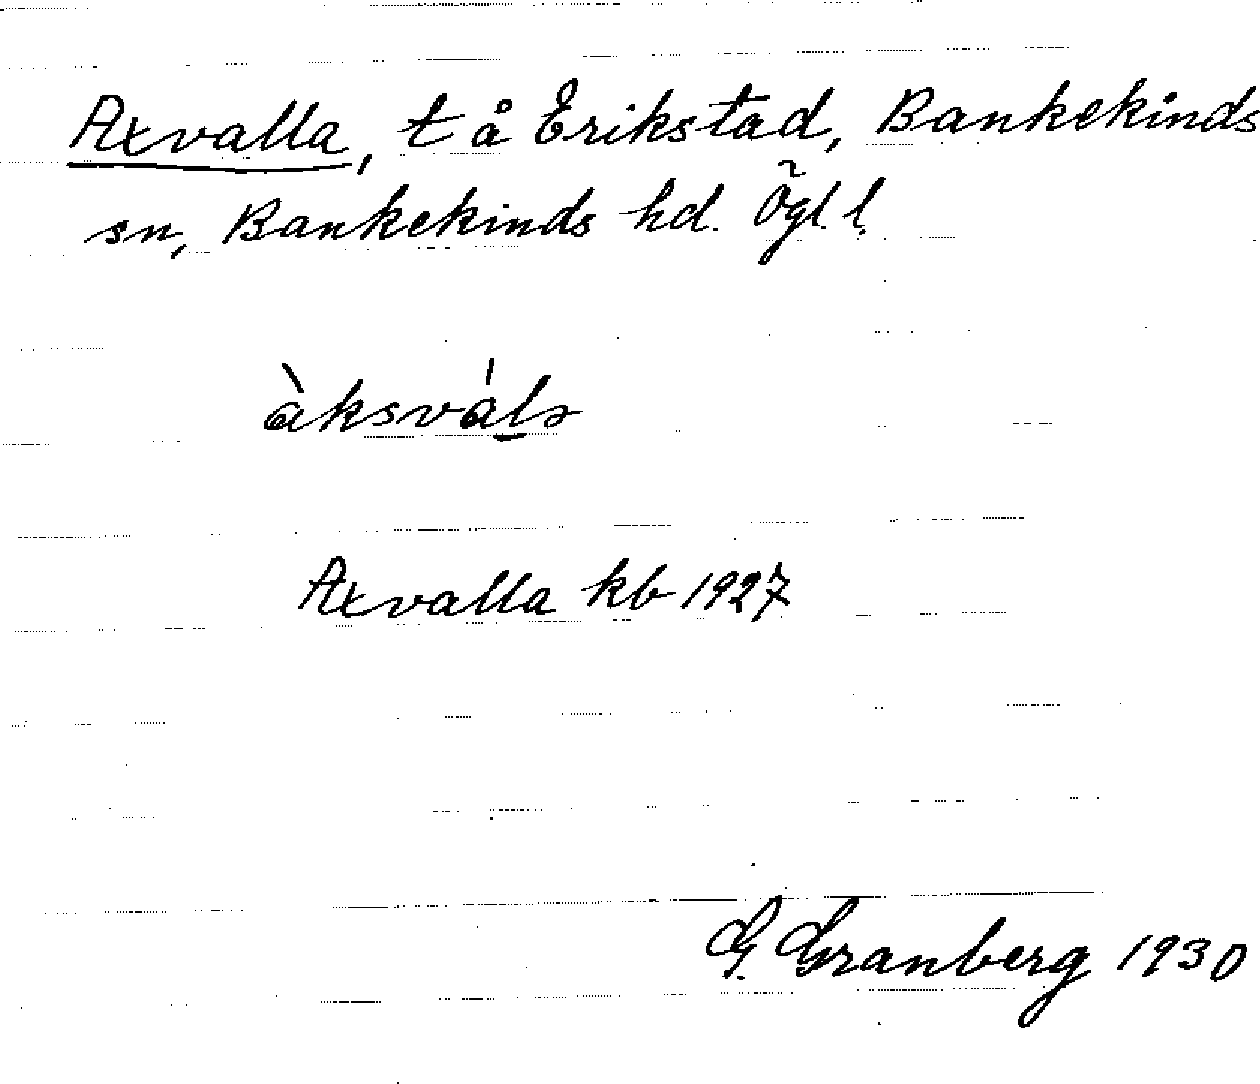 Axvalla, t å Erikstad, Bankekinds
sn, Bankekinds hd. Ögl. l.
àksvál̠ɔ
Axvalla kb 1927
G. Granberg 1930